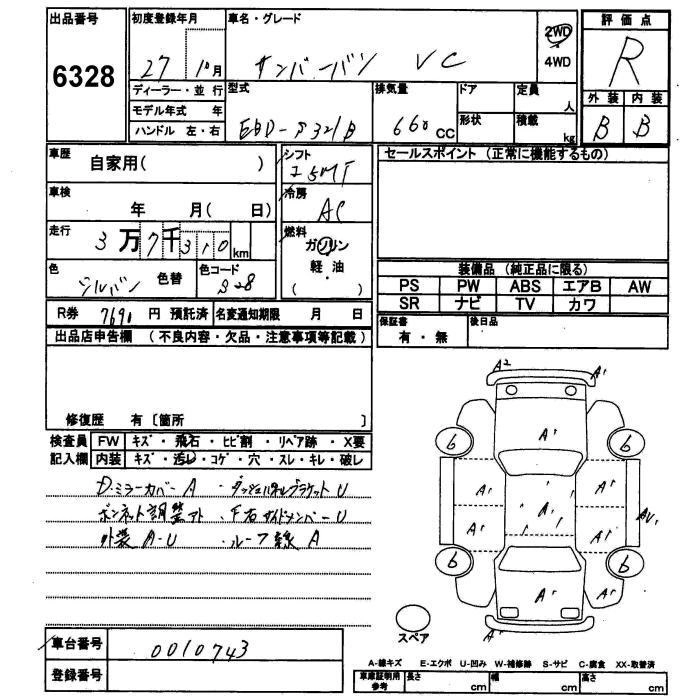 出品番号 初度登録年月 車名・グレード 評価点
6328 27 10月 サンバーバン VC 2WD 4WD R
ディーラー・並行 型式 排気量 ドア 定員 人 外装 内装
モデル年式 年 EBD-S321B 660 cc 形状 積載 kg B B
ハンドル 左・右
車歴 自家用( ) シフト 5MT セールスポイント (正常に機能するもの)
車検 年 月( 日) 冷房 AC
走行 3万7千310km 燃料 ガソリン
軽油
( )
色 シルバー 色替 色コード S28
装備品 (純正品に限る)
PS PW ABS エアB AW
SR ナビ TV カワ
R券 7690 円 預託済 名変通知期限 月 日 保証書 有・無 後日品
出品店申告欄 (不良内容・欠品・注意事項等記載)
修復歴 有〔箇所 〕
検査員 FW キズ・飛石・ヒビ割・リペア跡・X要
記入欄 内装 キズ・汚レ・コゲ・穴・スレ・キレ・破レ
D・ミラーカバーA ・ダッシュパネルブラケットU
ボンネット調整アト ・F右サイドメンバーU
外装 A・U ・ルーフ線A
A2 A1
A1
6 6
A1 A1 A1
A1 A1 A1 AU1
6 6
A1 A1 A1
A1
スペア
車台番号 0010743
登録番号
A-線キズ E-エクボ U-凹み W-補修跡 S-サビ C-腐食 XX-取替済
車庫証明用参考 長さ cm 幅 cm 高さ cm